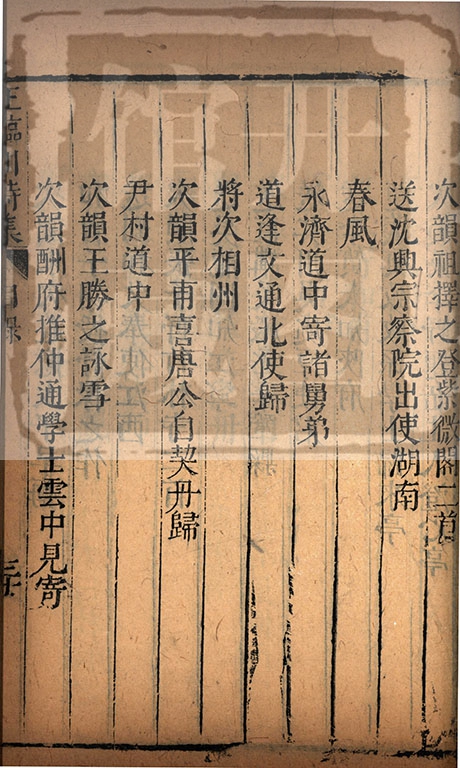 次韻祖擇之登紫微閣二首
送沈興宗察院出使湖南
春風
永濟道中寄諸舅弟
道逢文通北使歸
將次相州
次韻平甫喜唐公自契丹歸
尹村道中
次韻王勝之詠雪
次韻酬府推仲通學士雲中見寄
王臨川詩集 目錄